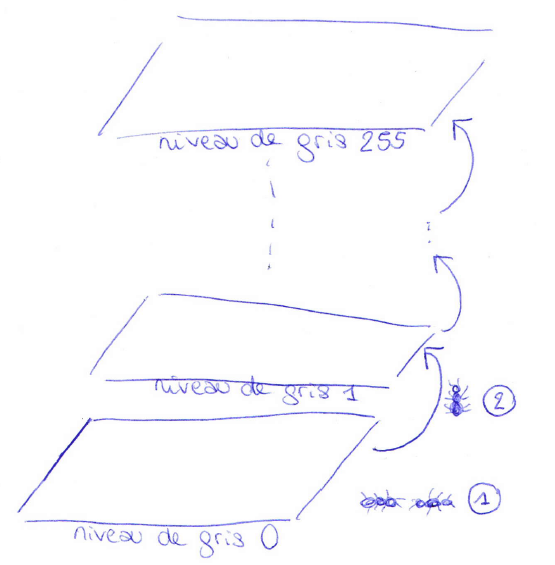 niveau de gris 255
niveau de gris 1
2
1
niveau de gris 0